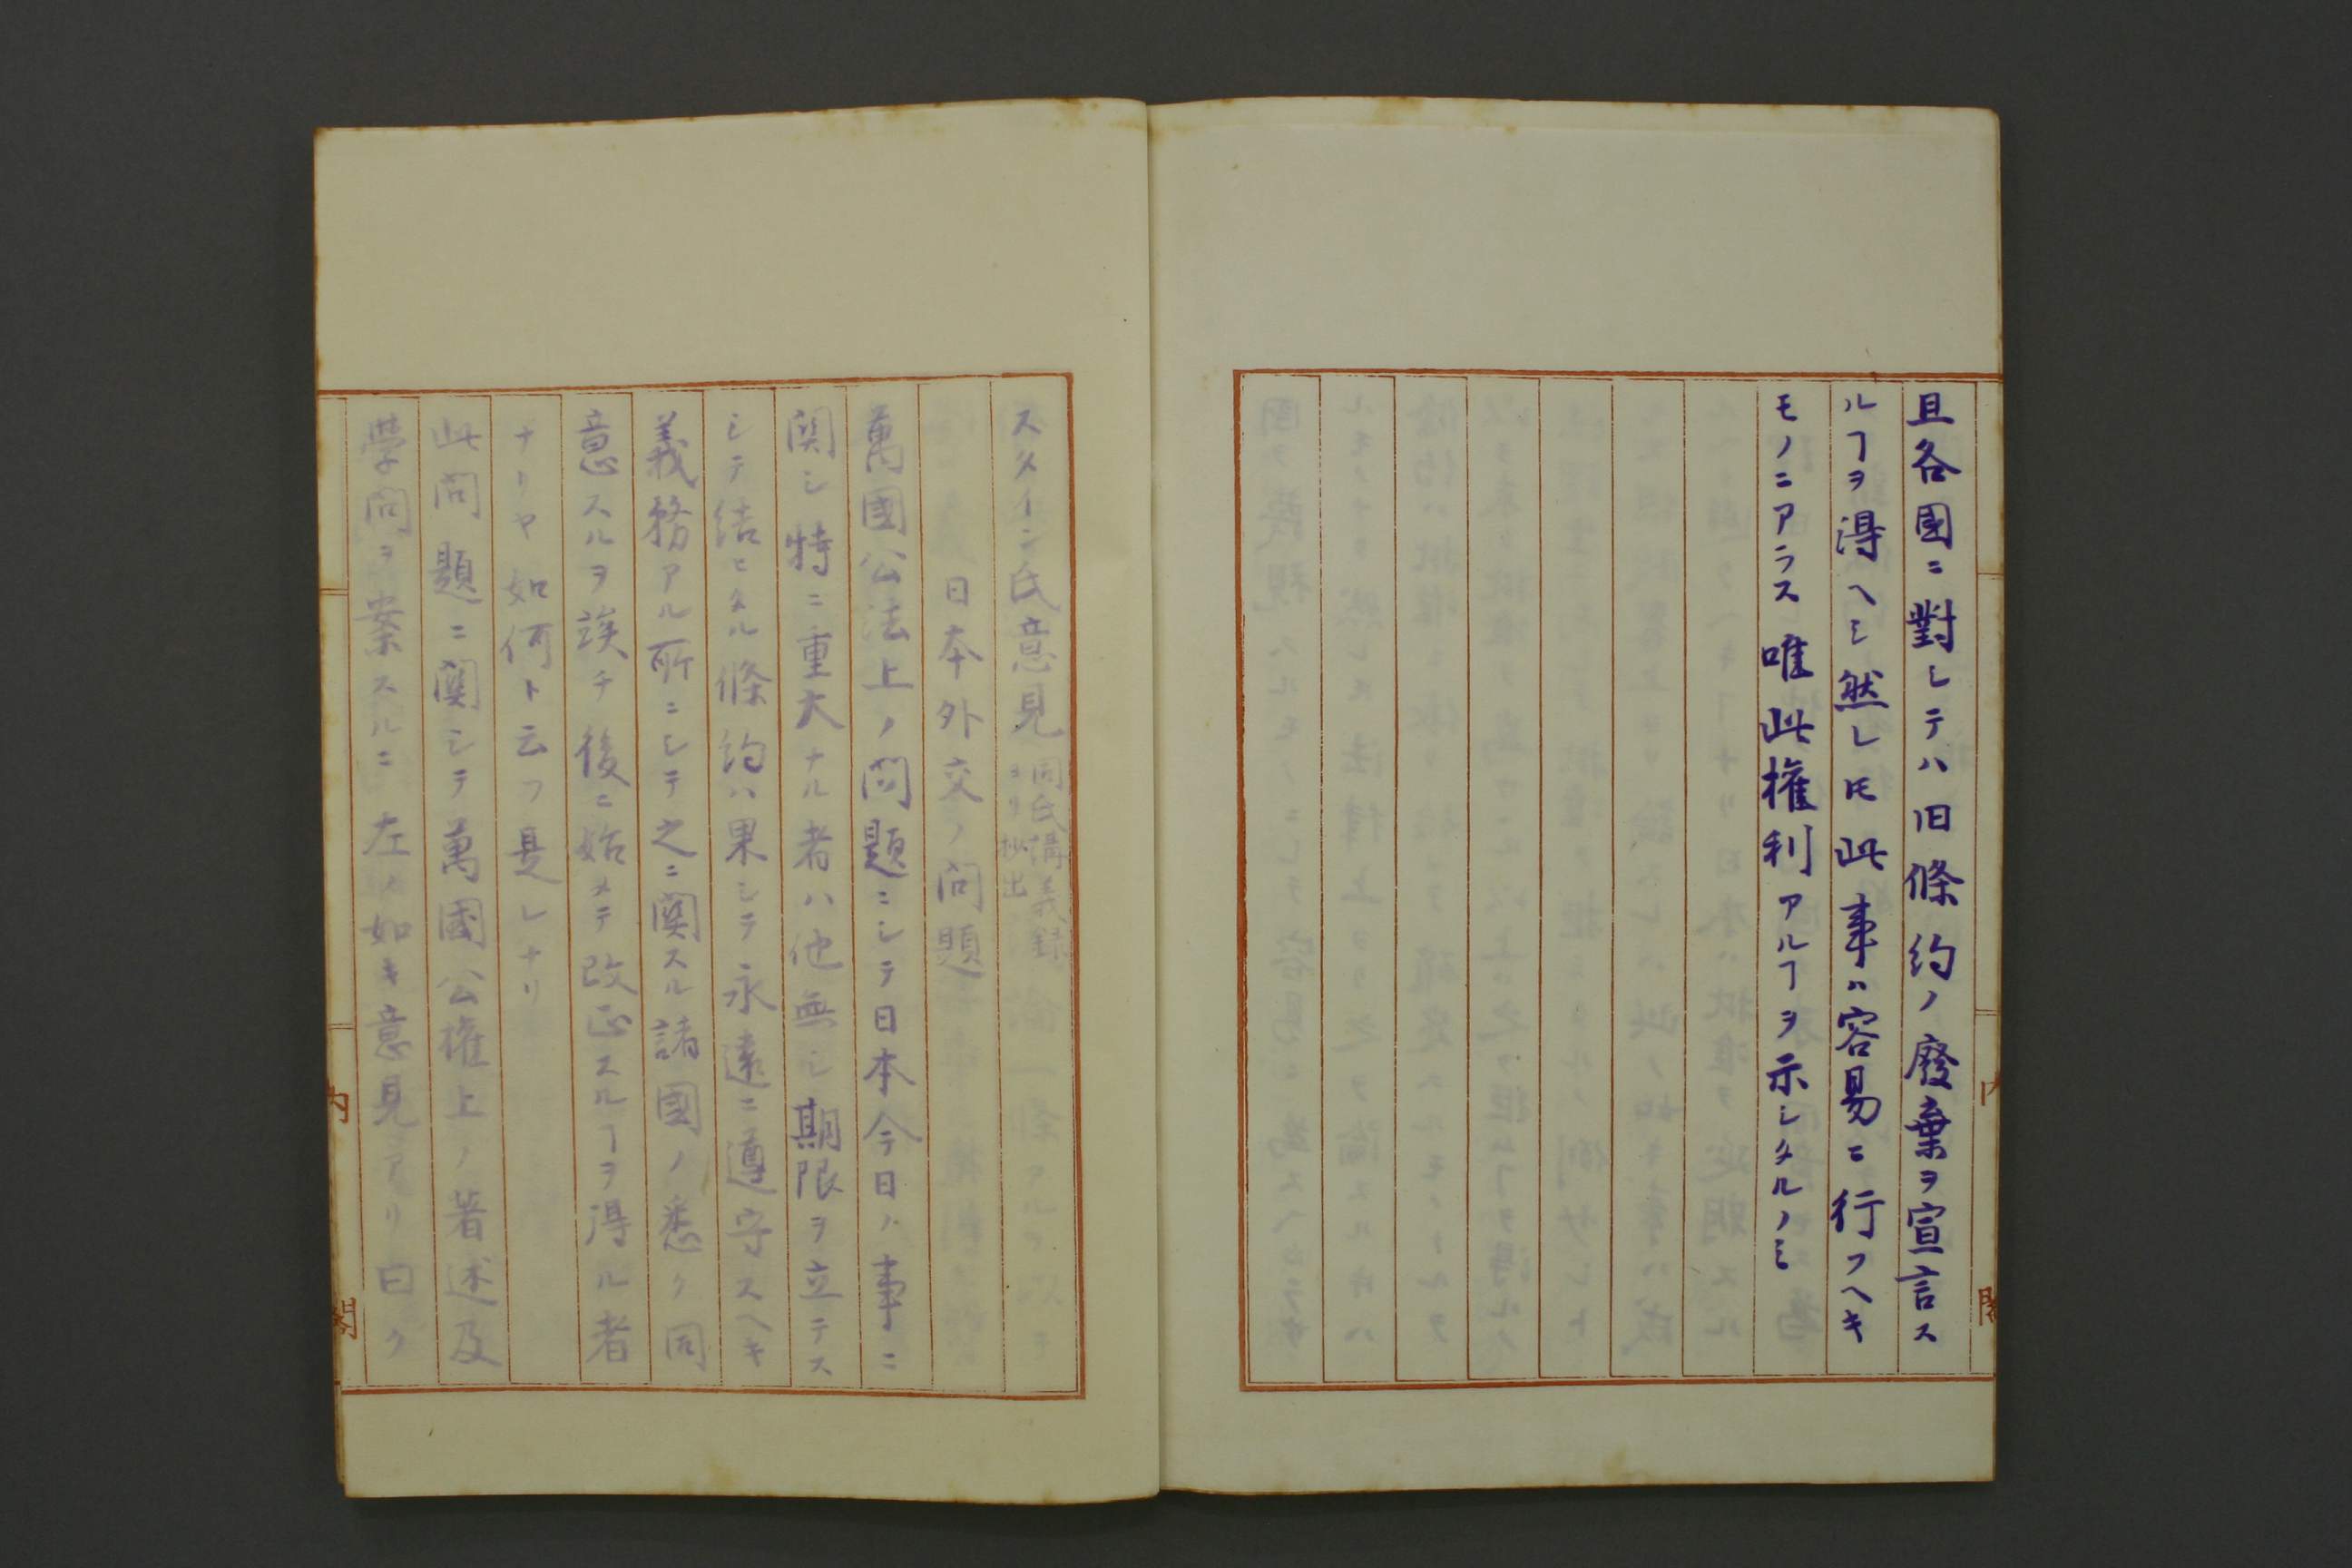 且各國ニ對シテハ旧條約ノ廢棄ヲ宣言ス
ルヿヲ得ヘシ然レ𪜈此事ハ容易ニ行フヘキ
モノニアラス唯此権利アルヿヲ示シタルノミ
スタイン氏意見 同氏講義録
ヨリ抄出
日本外交ノ問題
萬國公法上ノ問題ニシテ日本今日ノ事ニ
関シ特ニ重大ナル者ハ他無シ期限ヲ立テス
シテ結ヒタル條約ハ果シテ永遠ニ遵守スヘキ
義務アル所ニシテ之ニ関スル諸國ノ悉ク同
意スルヲ竢チ後ニ始メテ改正スルヿヲ得ル者
ナリヤ如何ト云フ是レナリ
此問題ニ関シテ萬國公権上ノ著述及
學問ヲ案スルニ左ノ如キ意見アリ曰ク
内
閣
内
閣